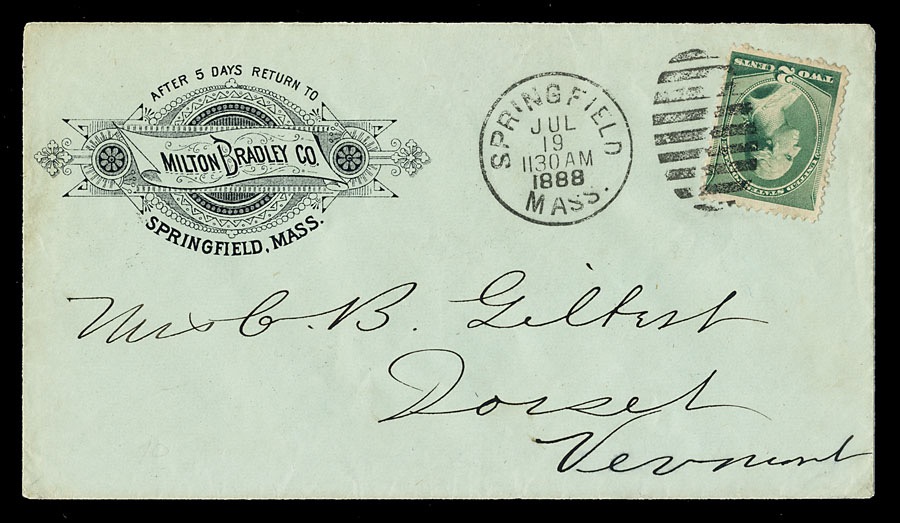 AFTER 5 DAYS RETURN TO
MILTON BRADLEY CO.
SPRINGFIELD, MASS.
SPRINGFIELD
JUL
19
1130AM
1888
MASS.
TWO 2 CENTS
Mrs C. B. Gilbert
Dorset
Vermont